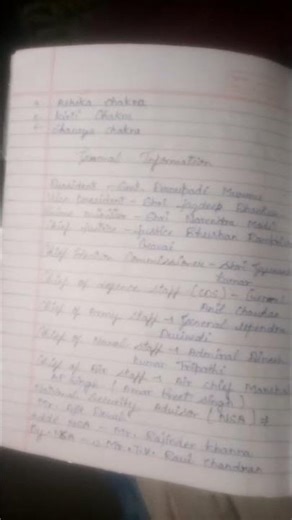 Ashoka Chakra
Kirti Chakra
Shaurya Chakra
General Information
President - Smt. Draupadi Murmu
Vice President - Shri Jagdeep
Prime minister - Shri Narendra Modi
Chief Justice - Justice Bhushan
Gavai
Chief Election Commissioner - Shri
Kumar
Chief of Defence Staff (CDS) - General
Anil Chauhan
Chief of Army Staff → General Upendra
Dwivedi
Chief of Naval Staff → Admiral Dinesh
Kumar Tripathi
Chief of Air Staff → Air Chief Marshal
AP Singh (Amar Preet Singh)
National Security Advisor (NSA) →
Mr. Ajit Doval
Addl NSA - Mr. Rajinder Khanna
Dy. NSA → Mr. T.V. Ravi Chandran